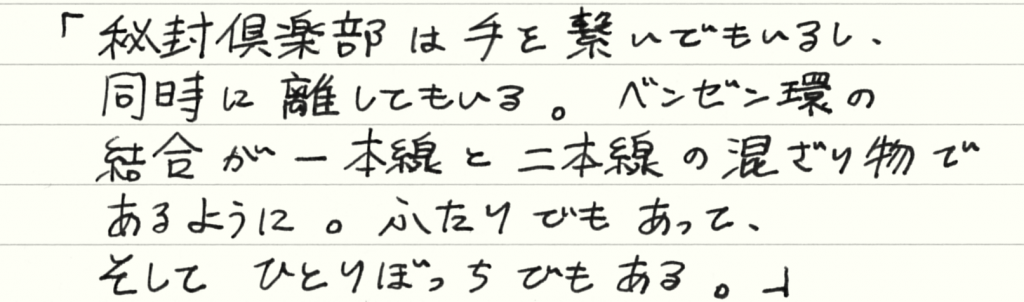 「秘封倶楽部は手を繋いでもいるし、
同時に離してもいる。ベンゼン環の
結合が一本線と二本線の混ざり物で
あるように。ふたりでもあって、
そして ひとりぼっちでもある。」